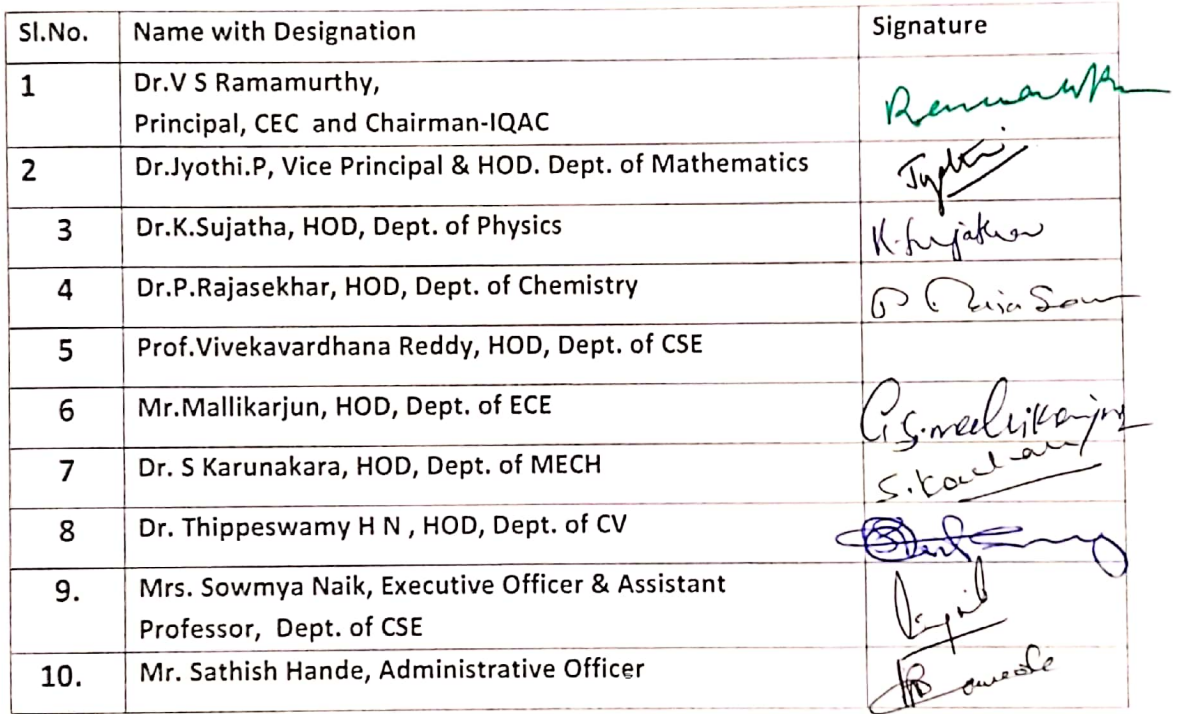 Sl.No. Name with Designation Signature
1 Dr.V S Ramamurthy,
Principal, CEC and Chairman-IQAC
2 Dr.Jyothi.P, Vice Principal & HOD. Dept. of Mathematics Jyothi
3 Dr.K.Sujatha, HOD, Dept. of Physics K.Sujatha
4 Dr.P.Rajasekhar, HOD, Dept. of Chemistry
5 Prof.Vivekavardhana Reddy, HOD, Dept. of CSE
6 Mr.Mallikarjun, HOD, Dept. of ECE
7 Dr. S Karunakara, HOD, Dept. of MECH
8 Dr. Thippeswamy H N , HOD, Dept. of CV
9. Mrs. Sowmya Naik, Executive Officer & Assistant
Professor, Dept. of CSE
10. Mr. Sathish Hande, Administrative Officer